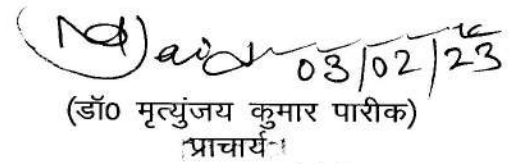 03/02/23
(डॉ0 मृत्युंजय कुमार पारीक)
प्राचार्य